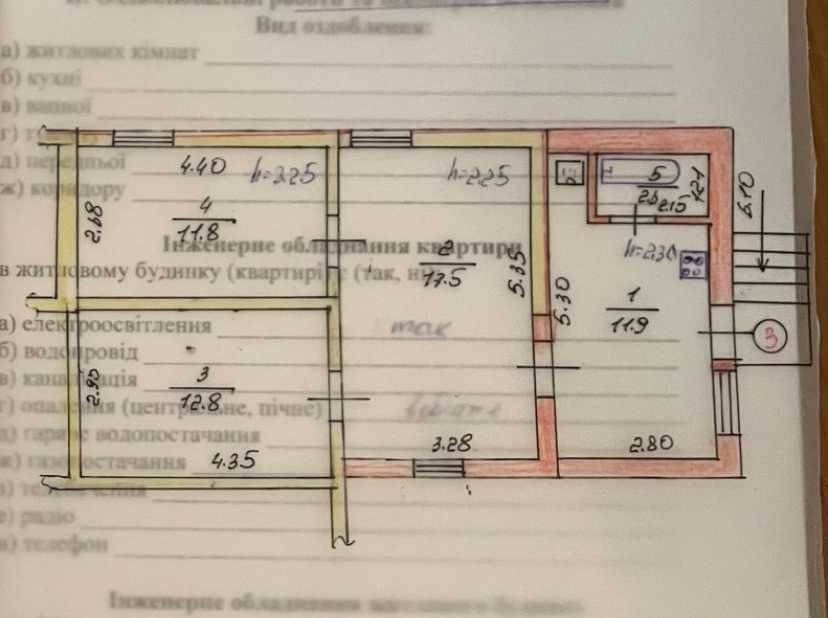 Вид оздоблення:
а) житлових кімнат
б) кухні
в) ванної
г)
д) передньої
ж) коридору
4.40
h=2.25
h=2.25
2.68
4
11.8
5
2.6
2.15
1.21
5.10
Інженерне обладнання квартири
h=2.30
в житловому будинку (квартирі) є (так, ні)
2
17.5
5.35
5.30
1
11.9
а) електроосвітлення
так
б) водопровід
в) каналізація
3
12.8
2.90
г) опалення (центральне, пічне)
д) гаряче водопостачання
3.28
2.80
ж) газопостачання
4.35
е) радіо
телефон
Інженерне обладнання